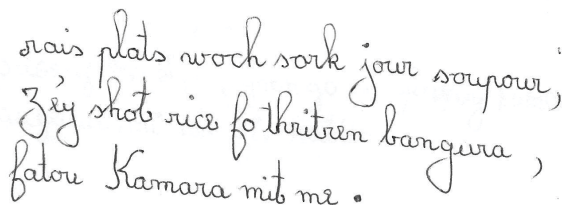 rais plats woch sork jour soupour,
Zéy shot rice fo thritren bangura,
fatou Kamara mit me.